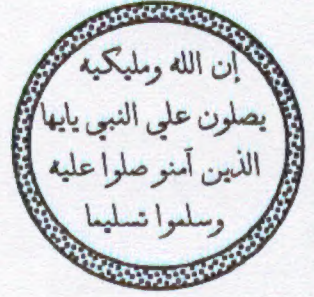 إن الله ومليكيه
يصلون علي النبي يايها
الذين آمنو صلوا عليه
وسلموا تسليما